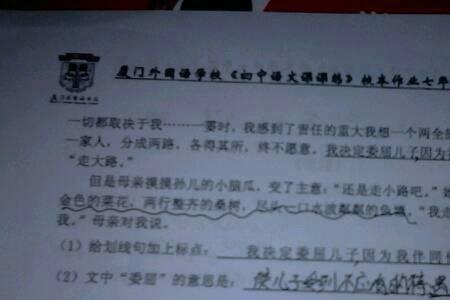 厦门外国语学校
厦门外国语学校《初中语文课课练》校本作业七年
一切都取决于我………霎时，我感到了责任的重大我想一个两全
一家人，分成两路，各得其所，终不愿意。我决定委屈儿子因为
“走大路。”
但是母亲摸摸孙儿的小脑瓜，变了主意：“还是走小路吧。”
金色的菜花，两行整齐的桑树，尽头一口水波粼粼的鱼塘。“我走
我。”母亲对我说。
（1）给划线句加上标点： 我决定委屈儿子,因为我伴同他
（2）文中“委屈”的意思是：使儿子受到不应有的待遇